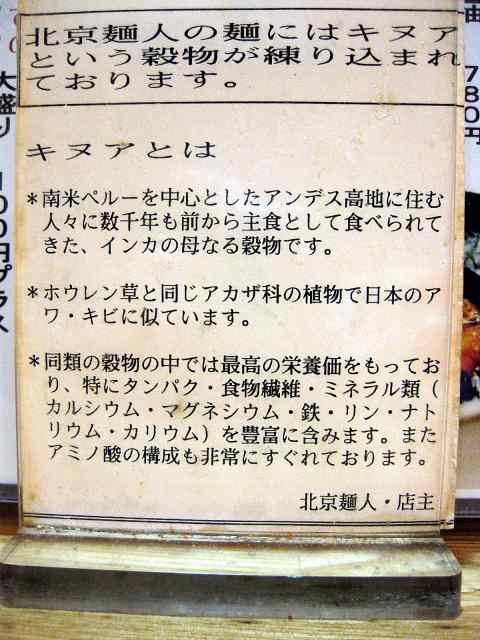 北京麺人の麺にはキヌア
という穀物が練り込まれ
ております。
キヌアとは
＊南米ペルーを中心としたアンデス高地に住む
人々に数千年も前から主食として食べられて
きた、インカの母なる穀物です。
＊ホウレン草と同じアカザ科の植物で日本のア
ワ・キビに似ています。
＊同類の穀物の中では最高の栄養価をもってお
り、特にタンパク・食物繊維・ミネラル類（
カルシウム・マグネシウム・鉄・リン・ナト
リウム・カリウム）を豊富に含みます。また
アミノ酸の構成も非常にすぐれております。
北京麺人・店主
大盛り100円プラス
780円